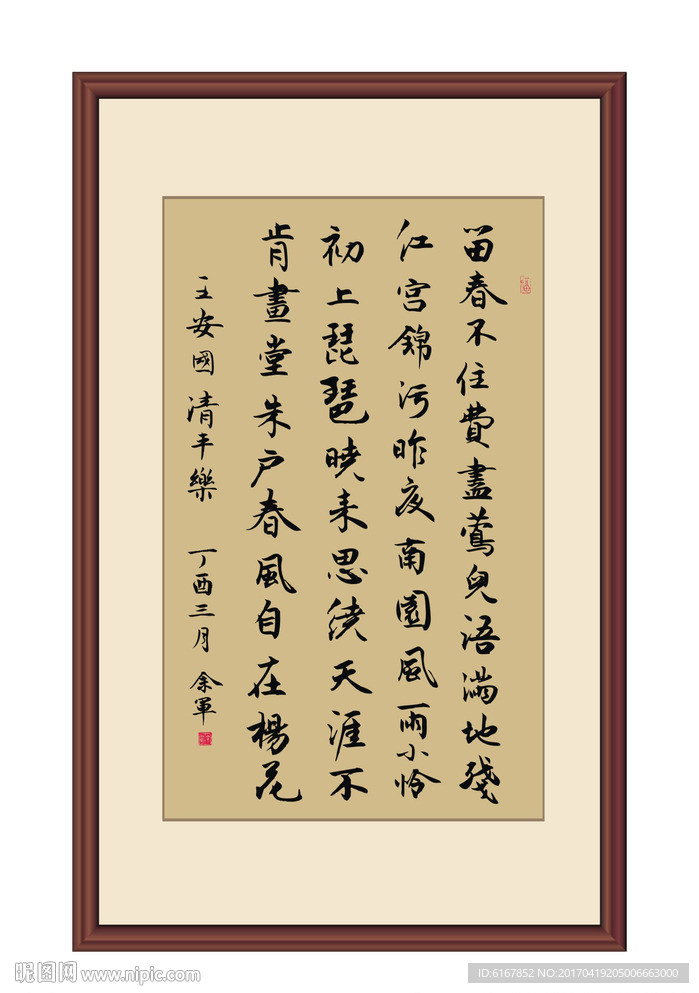 留春不住費盡鶯兒語滿地殘
紅宮錦污昨夜南園風雨小怜
初上琵琶曉来思繞天涯不
肯畫堂朱户春風自在楊花
王安國清平樂 丁酉三月 余軍
昵图网 www.nipic.com
ID:6167852 NO:20170419205006663000